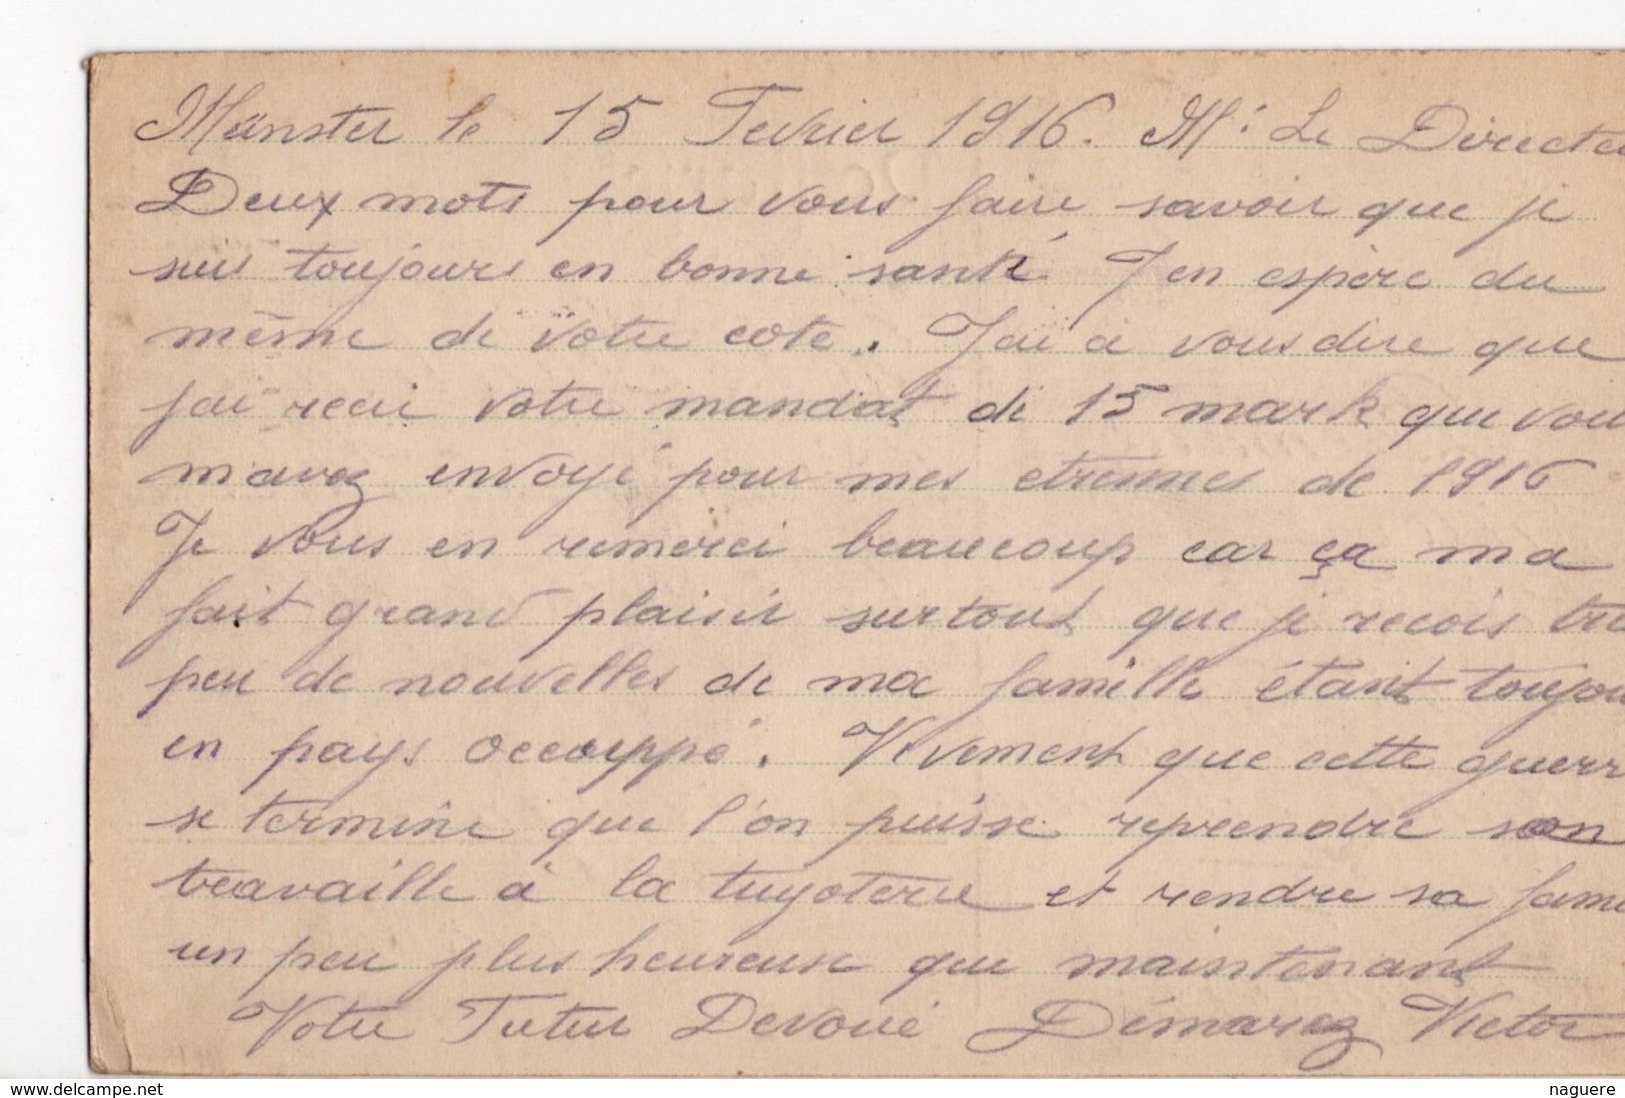 Münster le 15 Fevrier 1916. Mr Le Directeu
Deux mots pour vous faire savoir que je
suis toujours en bonne santé J'en espère du
même de votre cote. J'ai a vous dire que
j'ai recu votre mandat de 15 mark que vou
mavez envoyé pour mes etrennes de 1916
Je vous en remerci beaucoup car ça ma
fait grand plaisir surtout que je recois
peu de nouvelles de ma famille étant toujou
en pays occouppé. Vivement que cette guerr
se termine que l'on puisse reprendre son
travaille à la tuyoterie et rendre sa fami
un peu plus heureuse que maintenant
Votre Devoué Démarez Victor
www.delcampe.net
naguere